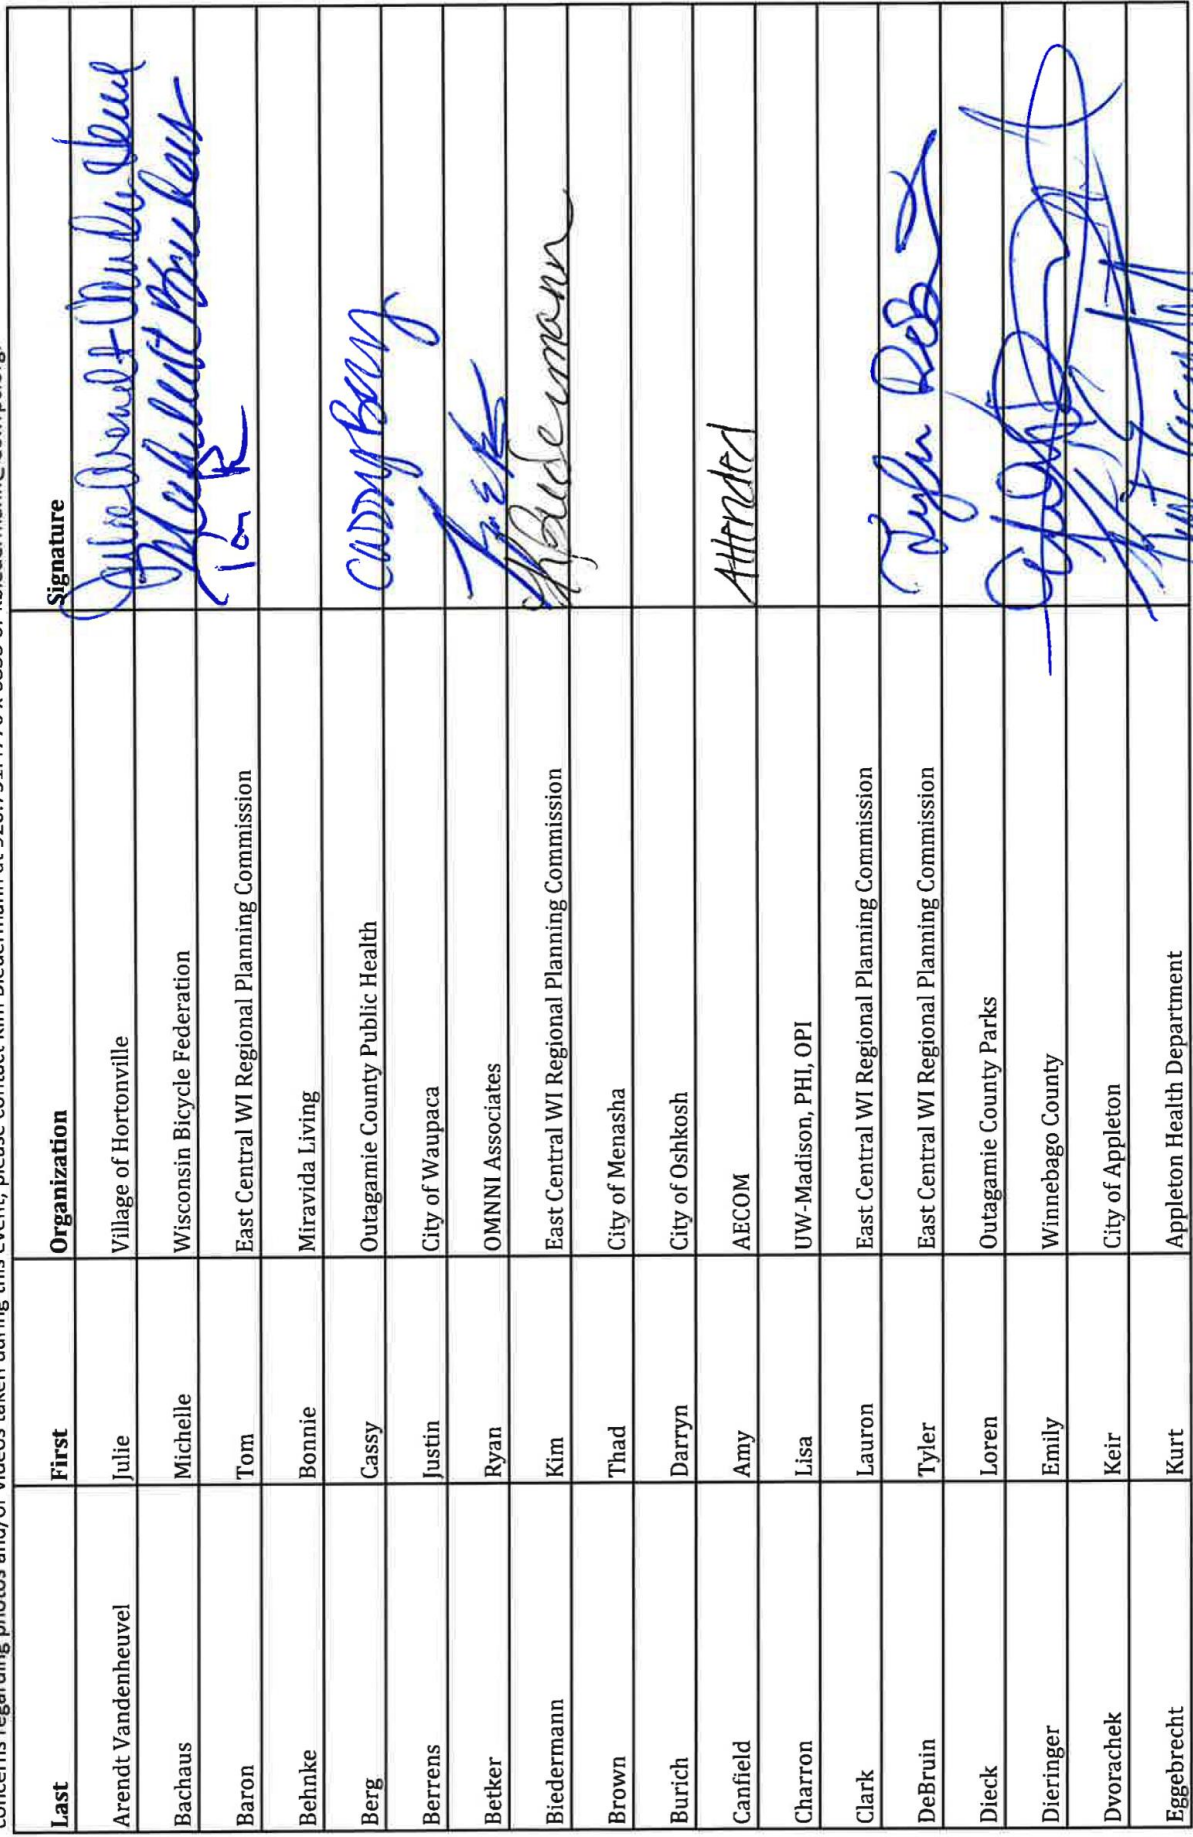 concerns regarding photos and/or videos taken during this event, please contact Kim Biedermann at
Last First Organization Signature
Arendt Vandenheuvel Julie Village of Hortonville
Bachaus Michelle Wisconsin Bicycle Federation
Baron Tom East Central WI Regional Planning Commission Tom
Behnke Bonnie Miravida Living
Berg Cassy Outagamie County Public Health Cassy Berg
Berrens Justin City of Waupaca
Betker Ryan OMNNI Associates
Biedermann Kim East Central WI Regional Planning Commission KBiedermann
Brown Thad City of Menasha
Burich Darryn City of Oshkosh
Canfield Amy AECOM Attended
Charron Lisa UW-Madison, PHI, OPI
Clark Lauron East Central WI Regional Planning Commission
DeBruin Tyler East Central WI Regional Planning Commission Tyler DeB
Dieck Loren Outagamie County Parks
Dieringer Emily Winnebago County
Dvorachek Keir City of Appleton
Eggebrecht Kurt Appleton Health Department Kurt